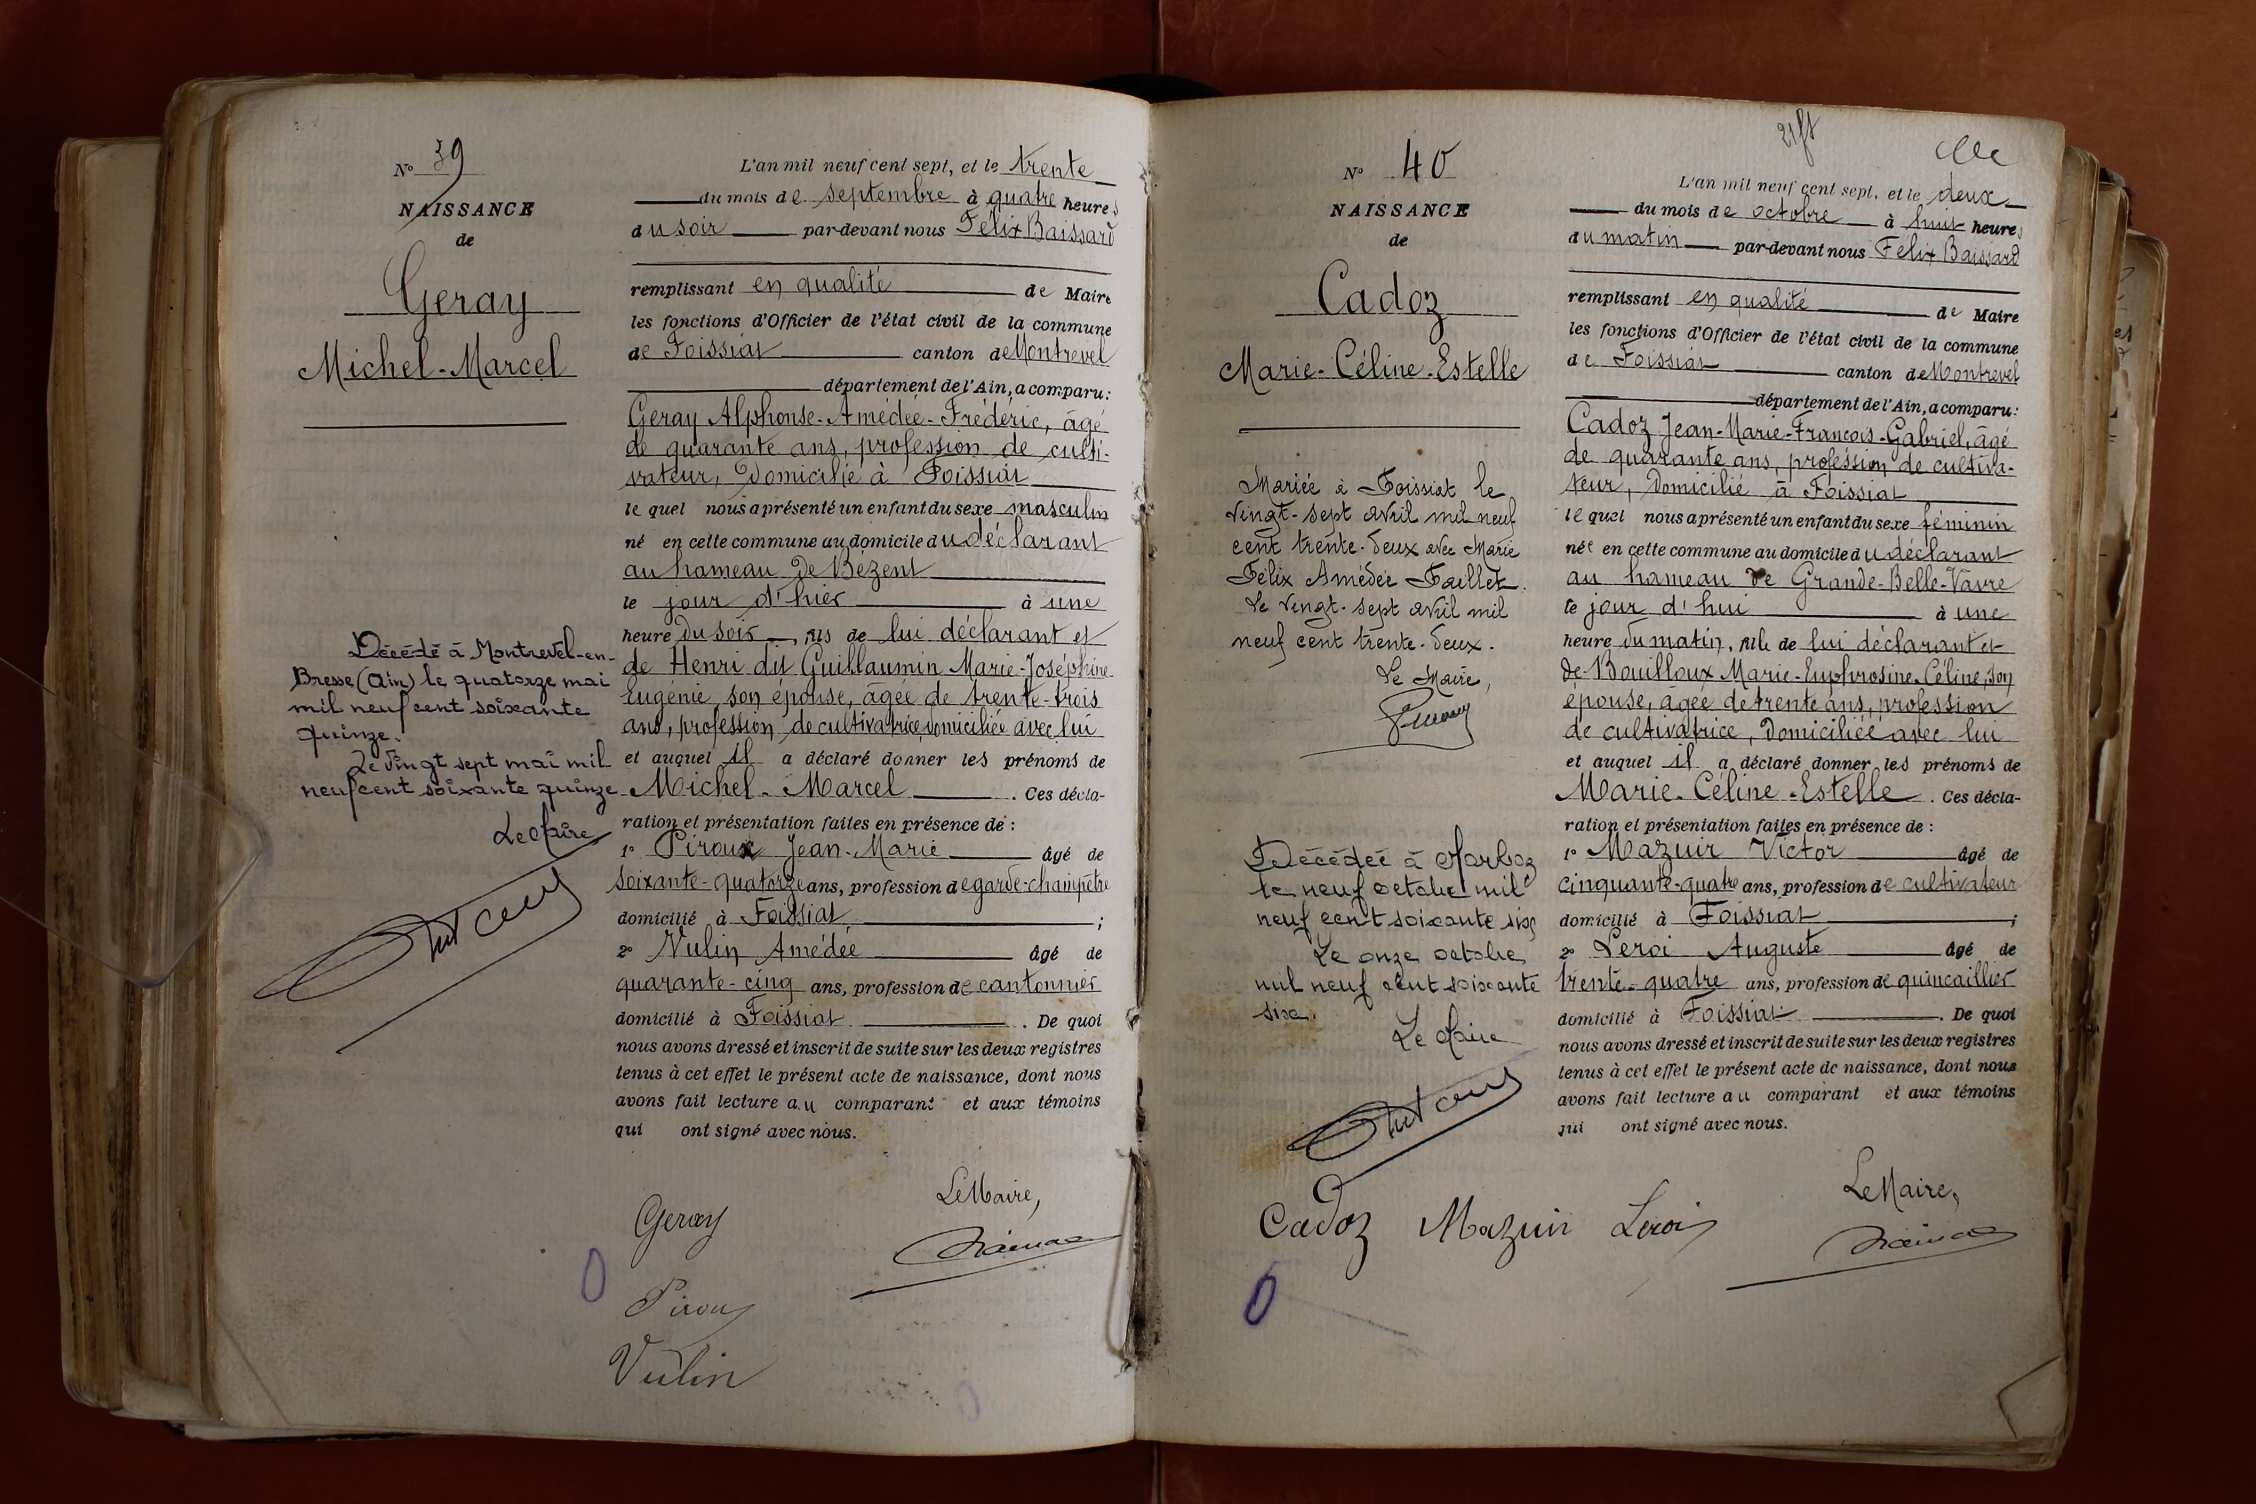 N° 39
NAISSANCE
de
Geray
Michel-Marcel
Décédé à Montrevel-en-
Bresse (Ain) le quatorze mai
mil neuf cent soixante
quinze.
Le vingt sept mai mil
neuf cent soixante quinze
Le Maire
L'an mil neuf cent sept, et le trente
du mois de septembre à quatre heures
du soir par-devant nous Félix Baissard
remplissant en qualité de Maire
les fonctions d'Officier de l'état civil de la commune
de Foissiat canton de Montrevel
département de l'Ain, a comparu:
Geray Alphonse-Amédée-Frédéric, âgé
de quarante ans, profession de culti-
vateur, domicilié à Foissiat
le quel nous a présenté un enfant du sexe masculin
né en cette commune au domicile du déclarant
au hameau de Bézent
le jour d'hier à une
heure du soir, fils de lui déclarant et
de Henri dit Guillaumin Marie-Joséphine-
Eugénie, son épouse, âgée de trente-trois
ans, profession de cultivatrice, domiciliée avec lui
et auquel il a déclaré donner les prénoms de
Michel-Marcel. Ces décla-
ration et présentation faites en présence de :
1° Piroux Jean-Marie âgé de
soixante-quatorze ans, profession de garde-champêtre
domicilié à Foissiat ;
2° Vulin Amédée âgé de
quarante-cinq ans, profession de cantonnier
domicilié à Foissiat. De quoi
nous avons dressé et inscrit de suite sur les deux registres
tenus à cet effet le présent acte de naissance, dont nous
avons fait lecture au comparant et aux témoins
qui ont signé avec nous.
Le Maire,
Geray
Piroux
Vulin
N° 40
NAISSANCE
de
Cadoz
Marie-Céline-Estelle
Mariée à Foissiat le
vingt-sept avril mil neuf
cent trente-deux avec Marie
Félix Amédée Faillet.
Le vingt-sept avril mil
neuf cent trente-deux.
Le Maire,
Décédée à Marboz
le neuf octobre mil
neuf cent soixante six
Le onze octobre
mil neuf cent soixante
six.
Le Maire
L'an mil neuf cent sept, et le deux
du mois de octobre à huit heures
du matin par-devant nous Félix Baissard
remplissant en qualité de Maire
les fonctions d'Officier de l'état civil de la commune
de Foissiat canton de Montrevel
département de l'Ain, a comparu:
Cadoz Jean-Marie-François-Gabriel, âgé
de quarante ans, profession de cultiva-
teur, domicilié à Foissiat
le quel nous a présenté un enfant du sexe féminin
née en cette commune au domicile du déclarant
au hameau de Grande-Belle-Vavre
le jour d'hui à une
heure du matin, fille de lui déclarant et
de Bouilloux Marie-Euphrosine-Céline, son
épouse, âgée de trente ans, profession
de cultivatrice, domiciliée avec lui
et auquel il a déclaré donner les prénoms de
Marie-Céline-Estelle. Ces décla-
ration et présentation faites en présence de :
1° Mazuir Victor âgé de
cinquante-quatre ans, profession de cultivateur
domicilié à Foissiat ;
2° Leroi Auguste âgé de
trente-quatre ans, profession de quincaillier
domicilié à Foissiat. De quoi
nous avons dressé et inscrit de suite sur les deux registres
tenus à cet effet le présent acte de naissance, dont nous
avons fait lecture au comparant et aux témoins
qui ont signé avec nous.
Le Maire,
Cadoz Mazuir Leroi